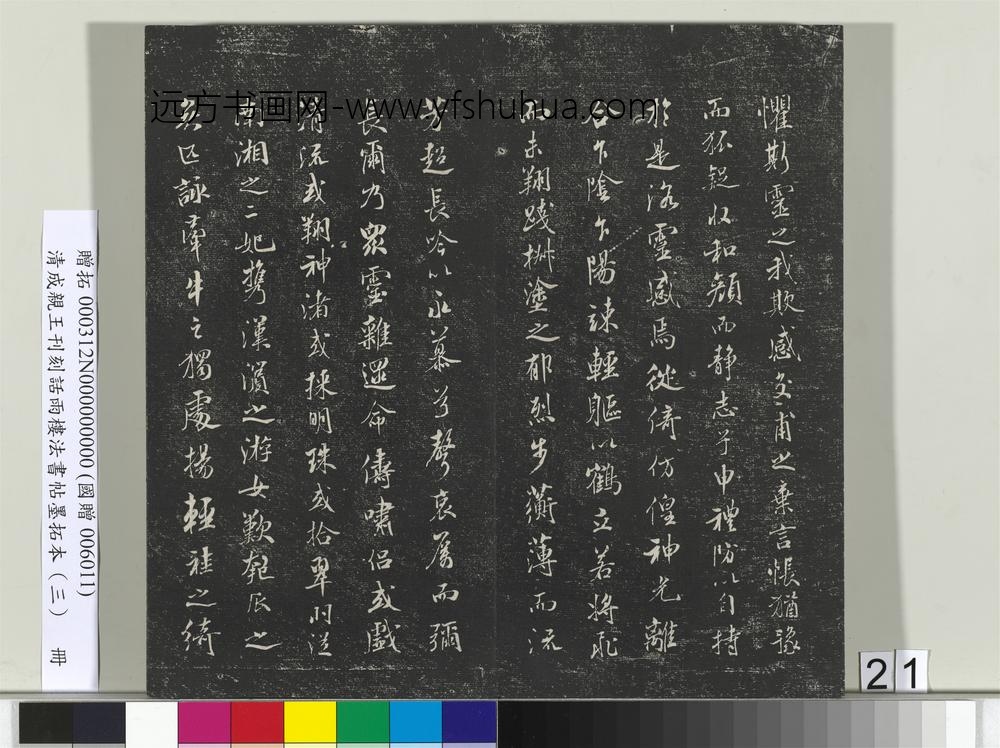 远方书画网-www.yfshuhua.com
懼斯靈之我欺感交甫之棄言悵猶豫
而狐疑收和顏而靜志予申禮防以自持
於是洛靈感焉徙倚仿偟神光離
合乍陰乍陽竦輕軀以鶴立若將飛
而未翔踐椒塗之郁烈步蘅薄而流
芳超長吟以永慕兮聲哀厲而彌
長爾乃眾靈雜遝命儔嘯侶或戲
清流或翔神渚或採明珠或拾翠羽從
南湘之二妃攜漢濱之游女歎匏瓜之
無匹詠牽牛之獨處揚輕袿之綺
贈拓 000312N000000000 (國贈 006011)
清成親王刊刻詒晉樓法書帖墨拓本 (三) 冊
21